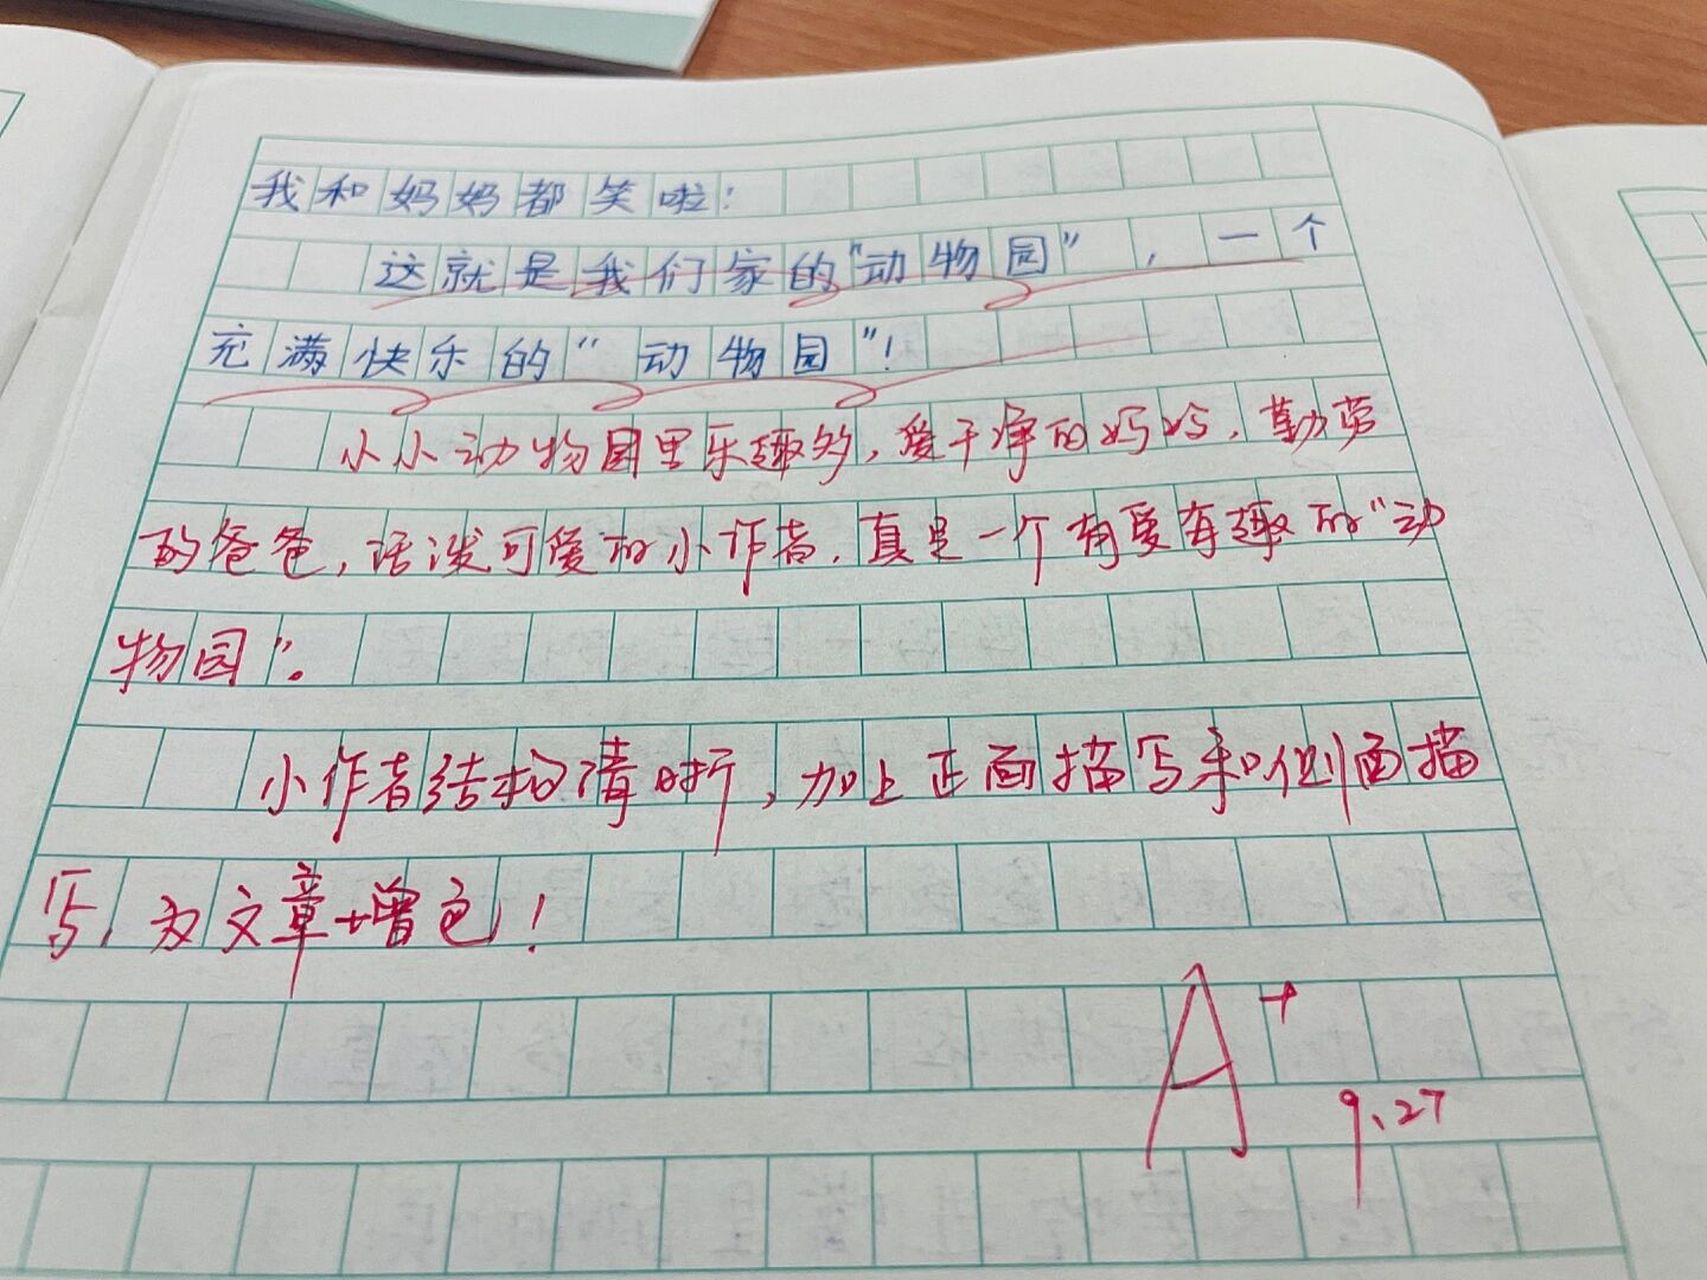 我和妈妈都笑啦！
这就是我们家的“动物园”，一个
充满快乐的“动物园”！
小小动物园里乐趣多，爱干净的妈妈，勤劳
的爸爸，活泼可爱的小作者，真是一个有爱有趣的“动
物园”。
小作者结构清晰，加上正面描写和侧面描
写，为文章增色！
A+
9.27